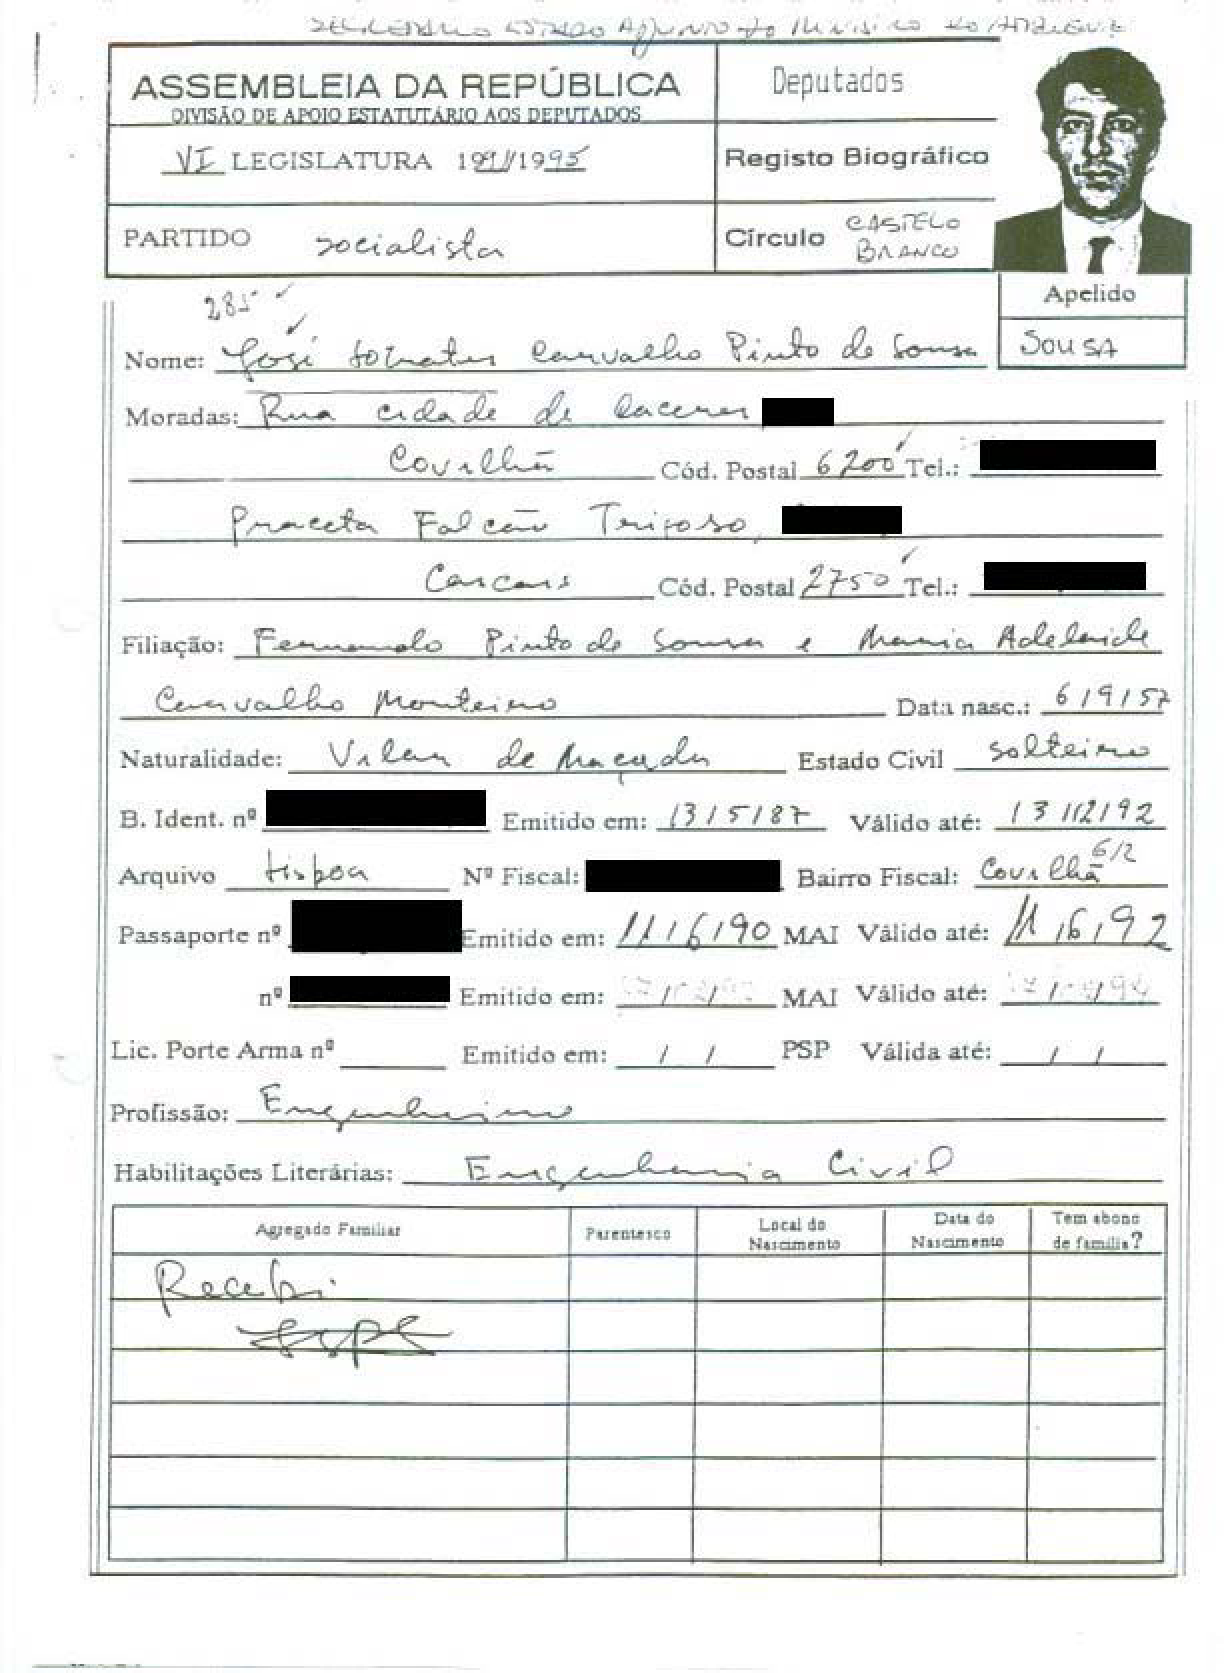 SECRETÁRIO ESTADO ADJUNTO do MINISTRO do AMBIENTE
ASSEMBLEIA DA REPÚBLICA
DIVISÃO DE APOIO ESTATUTÁRIO AOS DEPUTADOS
Deputados
VI LEGISLATURA 1991/1995
Registo Biográfico
PARTIDO socialista
Círculo CASTELO BRANCO
Apelido
SOUSA
285
Nome: José Sócrates Carvalho Pinto de Sousa
Moradas: Rua cidade de Caceres
Covilhã Cód. Postal 6200 Tel.:
Praceta Falcão Trigoso,
Cascais Cód. Postal 2750 Tel.:
Filiação: Fernando Pinto de Sousa e Maria Adelaide
Carvalho Monteiro Data nasc.: 6/9/57
Naturalidade: Vilar de Maçada Estado Civil solteiro
B. Ident. nº Emitido em: 13/5/87 Válido até: 13/12/92
Arquivo Lisboa Nº Fiscal: Bairro Fiscal: Covilhã 612
Passaporte nº Emitido em: 11/6/90 MAI Válido até: 11/6/92
nº Emitido em: / / MAI Válido até: / /94
Lic. Porte Arma nº Emitido em: / / PSP Válida até: / /
Profissão: Engenheiro
Habilitações Literárias: Engenharia Civil
Agregado Familiar Parentesco Local do Nascimento Data do Nascimento Tem abono de família?
Recebi